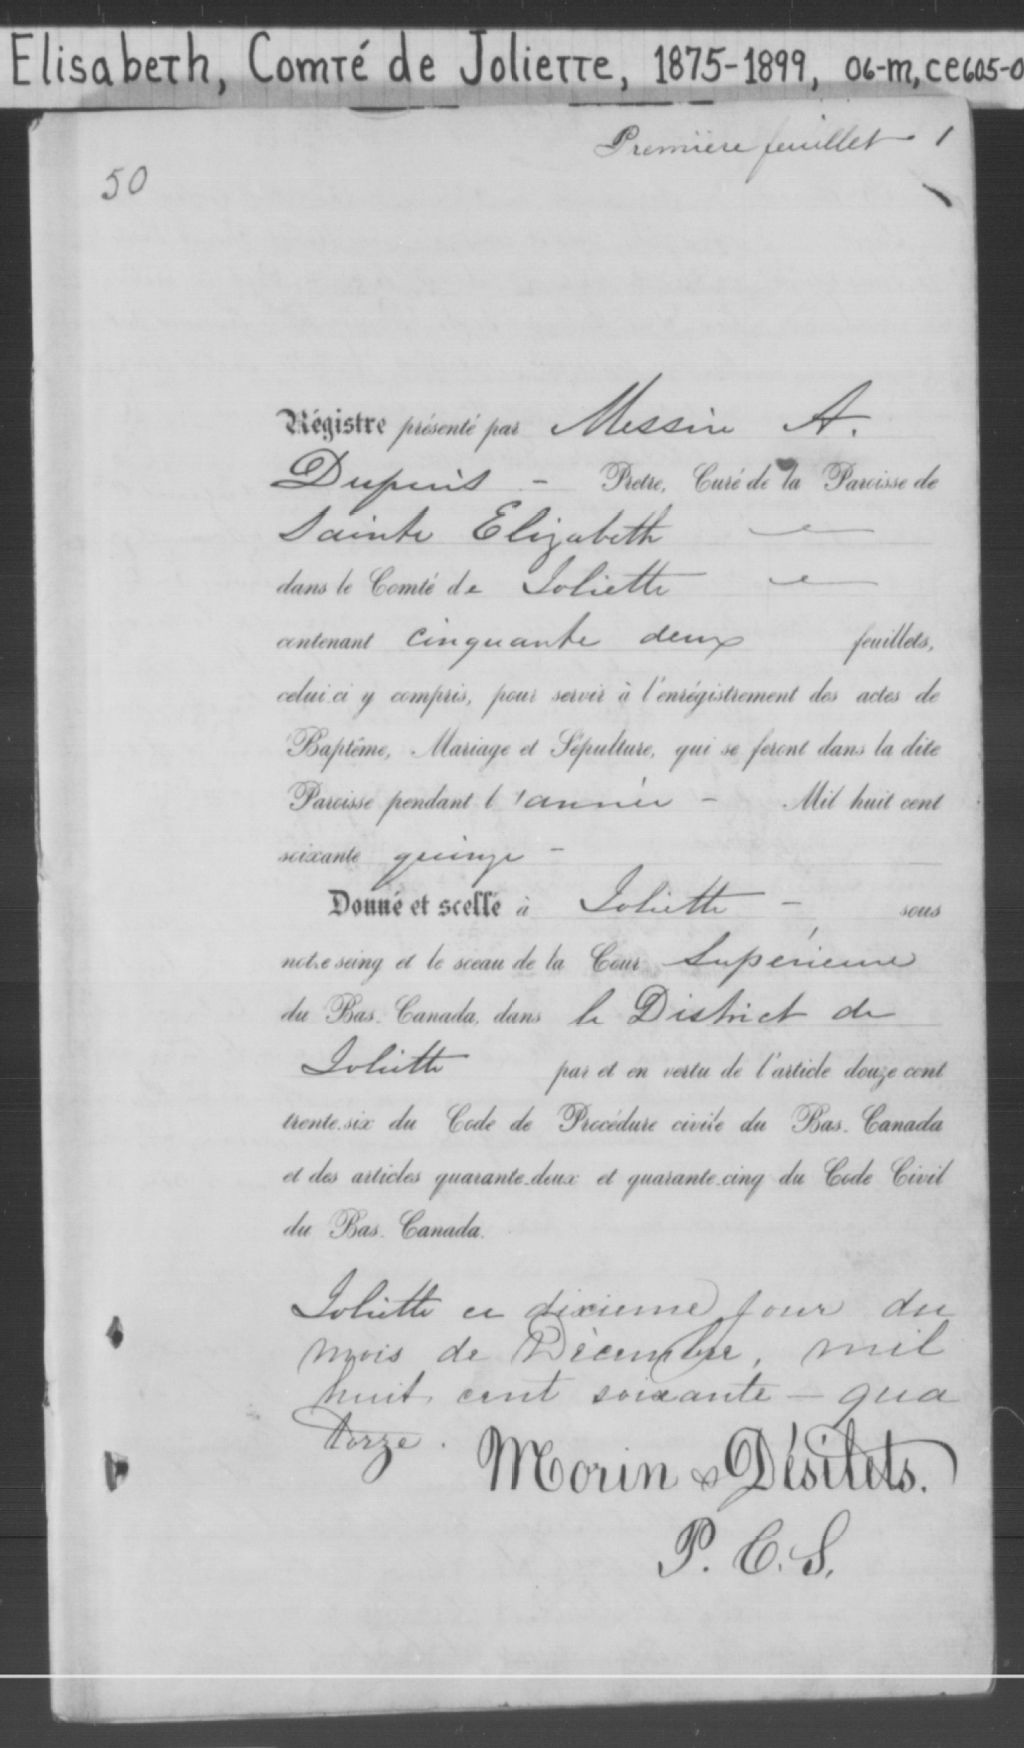 Elisabeth, Comté de Joliette, 1875-1899, 06-m, ce605-0
Premiere feuillet 1
50
Régistre présenté par Messire A.
Dupuis - Pretre, Curé de la Paroisse de
Sainte Elizabeth
dans le Comté de Joliette
contenant cinquante deux feuillets,
celui ci y compris, pour servir à l'enrégistrement des actes de
Baptême, Mariage et Sépulture, qui se feront dans la dite
Paroisse pendant l'année - Mil huit cent
soixante quinze -
Donné et scellé à Joliette - sous
notre seing et le sceau de la Cour Supérieure
du Bas-Canada, dans le District de
Joliette par et en vertu de l'article douze cent
trente-six du Code de Procédure civile du Bas-Canada
et des articles quarante-deux et quarante-cinq du Code Civil
du Bas-Canada.
Joliette ce dixieme jour du
mois de Décembre, mil
huit cent soixante - qua
torze.
Morin & Désilets.
P. C. S.